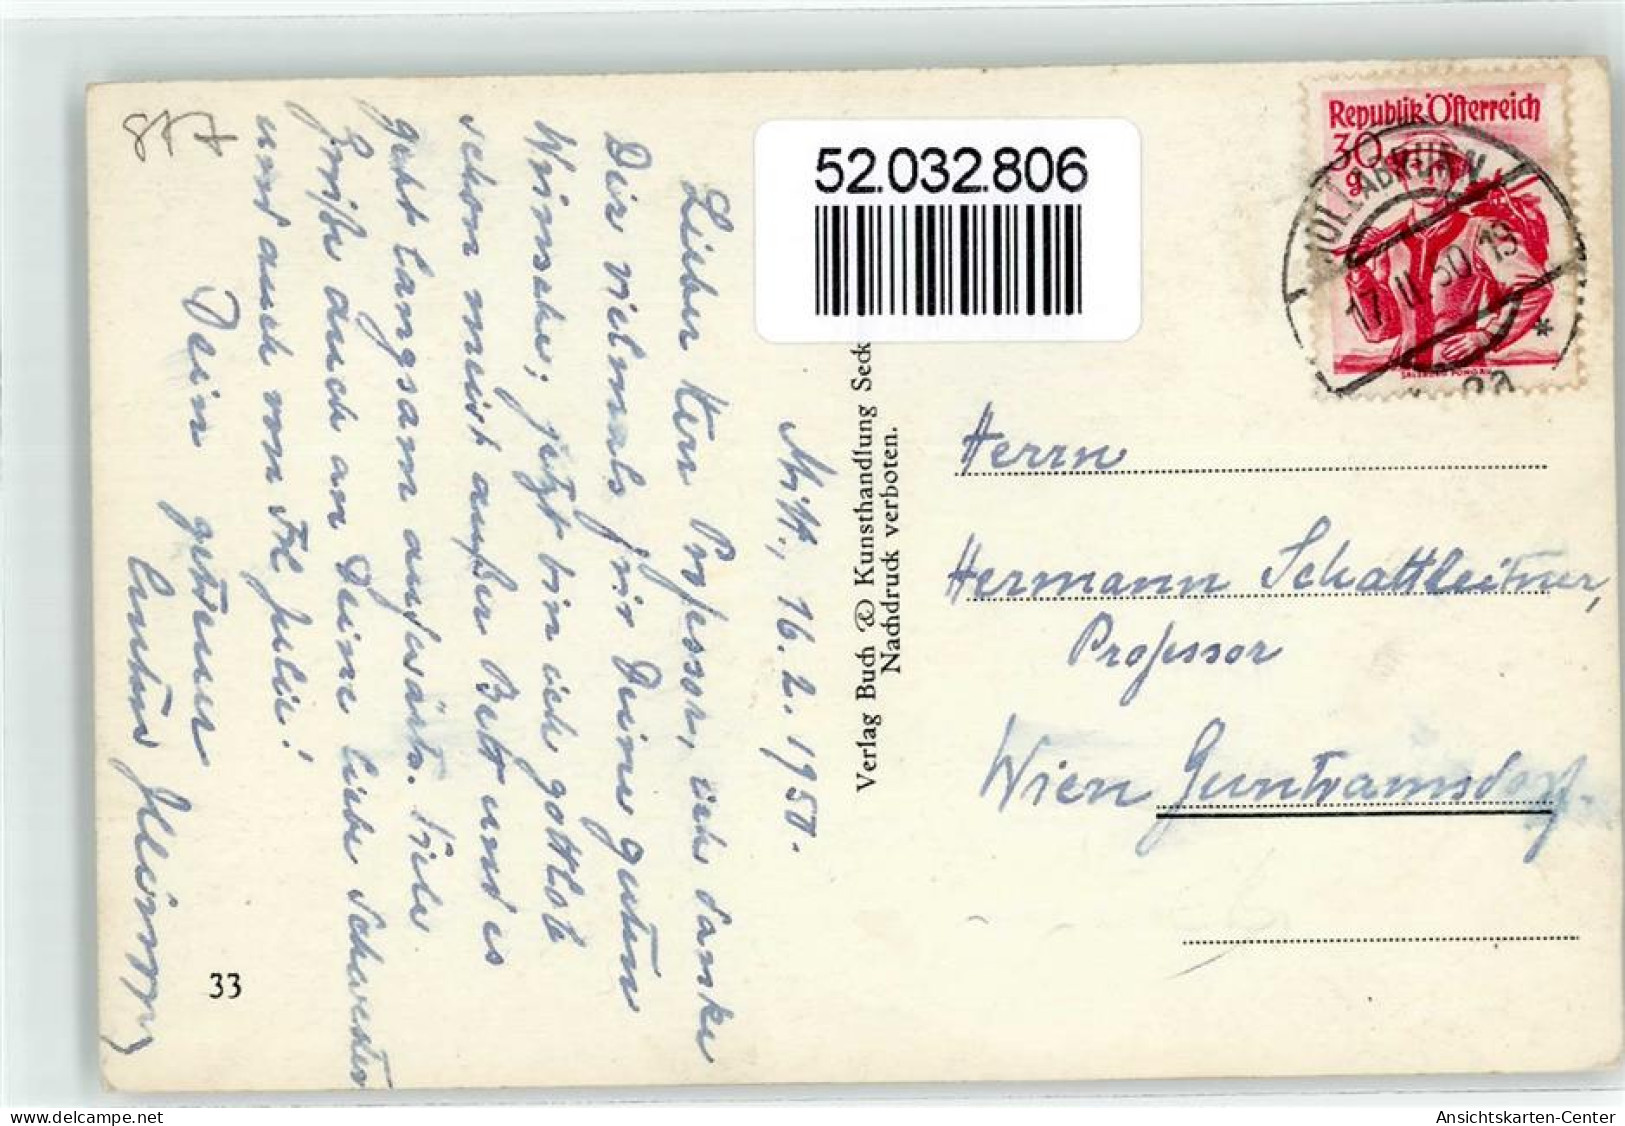 877
52.032.806
Republik Österreich
30
g
HOLLABRUNN
17. II. 50. 13
*
2a
SALZBURG PONGAU
Mitt., 16. 2. 1950.
Lieber Herr Professor, ich danke
Dir vielmals für Deine guten
Wünsche; jetzt bin ich gottlob
schon meist außer Bett und es
geht langsam aufwärts. Viele
Grüße auch an Deine liebe Schwester
und auch von Frl. Julie!
Dein getreuer
33
Verlag Buch & Kunsthandlung Seck
Nachdruck verboten.
Herrn
Hermann Schattleitner,
Professor
Wien Guntramsdorf.
Ansichtskarten-Center